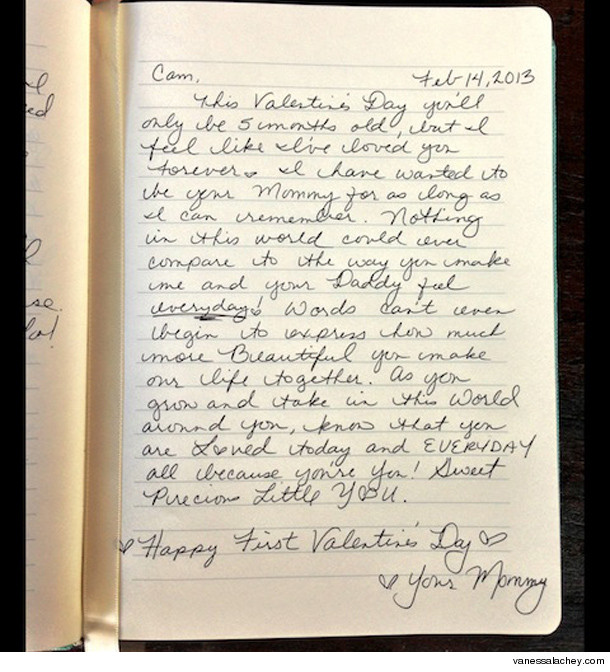 Cam, Feb 14, 2013
This Valentine's Day you'll
only be 5 months old, but I
feel like I've loved you
forever. I have wanted to
be your Mommy for as long as
I can remember. Nothing
in this world could ever
compare to the way you make
me and your Daddy feel
everyday! Words can't even
begin to express how much
more Beautiful you make
our life together. As you
grow and take in this World
around you, know that you
are Loved today and EVERYDAY
all because you're you! Sweet
Precious Little YOU.
Happy First Valentine's Day
Your Mommy
vanessalachey.com